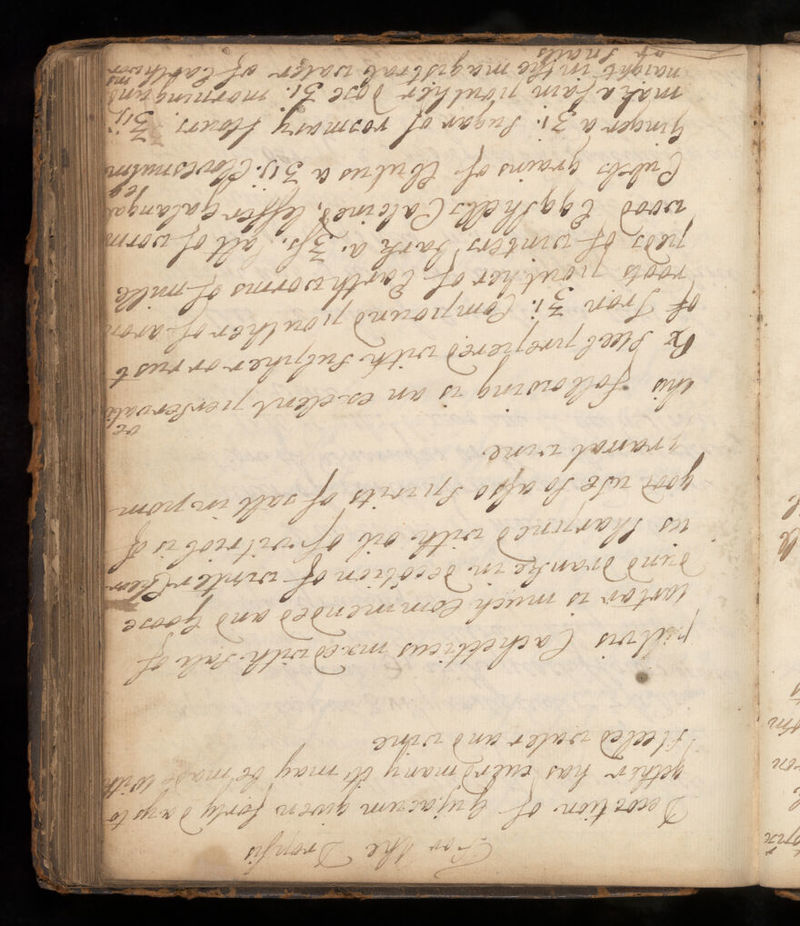 For the Dropsis
Decoction of Gujacum given forty days to
gether has cured many its may be made with
steeled water and wine
pulvis Cachecticus mixed with salt of
tartar is much Commended and goose
dung dranke in decoction of winter
is sharpned with oil of vitriol is of
good use so also spirits of salt in pom
granat wine
this following is an exelent perservati
ve
℞ steel prepered with sulpher or rust
of Iron ʒi. Compound poulther of aron
roots poulther of Earthworms of mille
peds of winters bark a. ʒſs. salt of worm
wood Eggshells Calcined, lesser galangal
Cubebs grains of Ebulus a ʒij. Cloves nutm
eg
Ginger a ʒi. sugar of rosmary flowrs. ʒij
mak a fain poulher dose ʒi. morning and
naight in the magistral water of Earthwor
ms
or snails